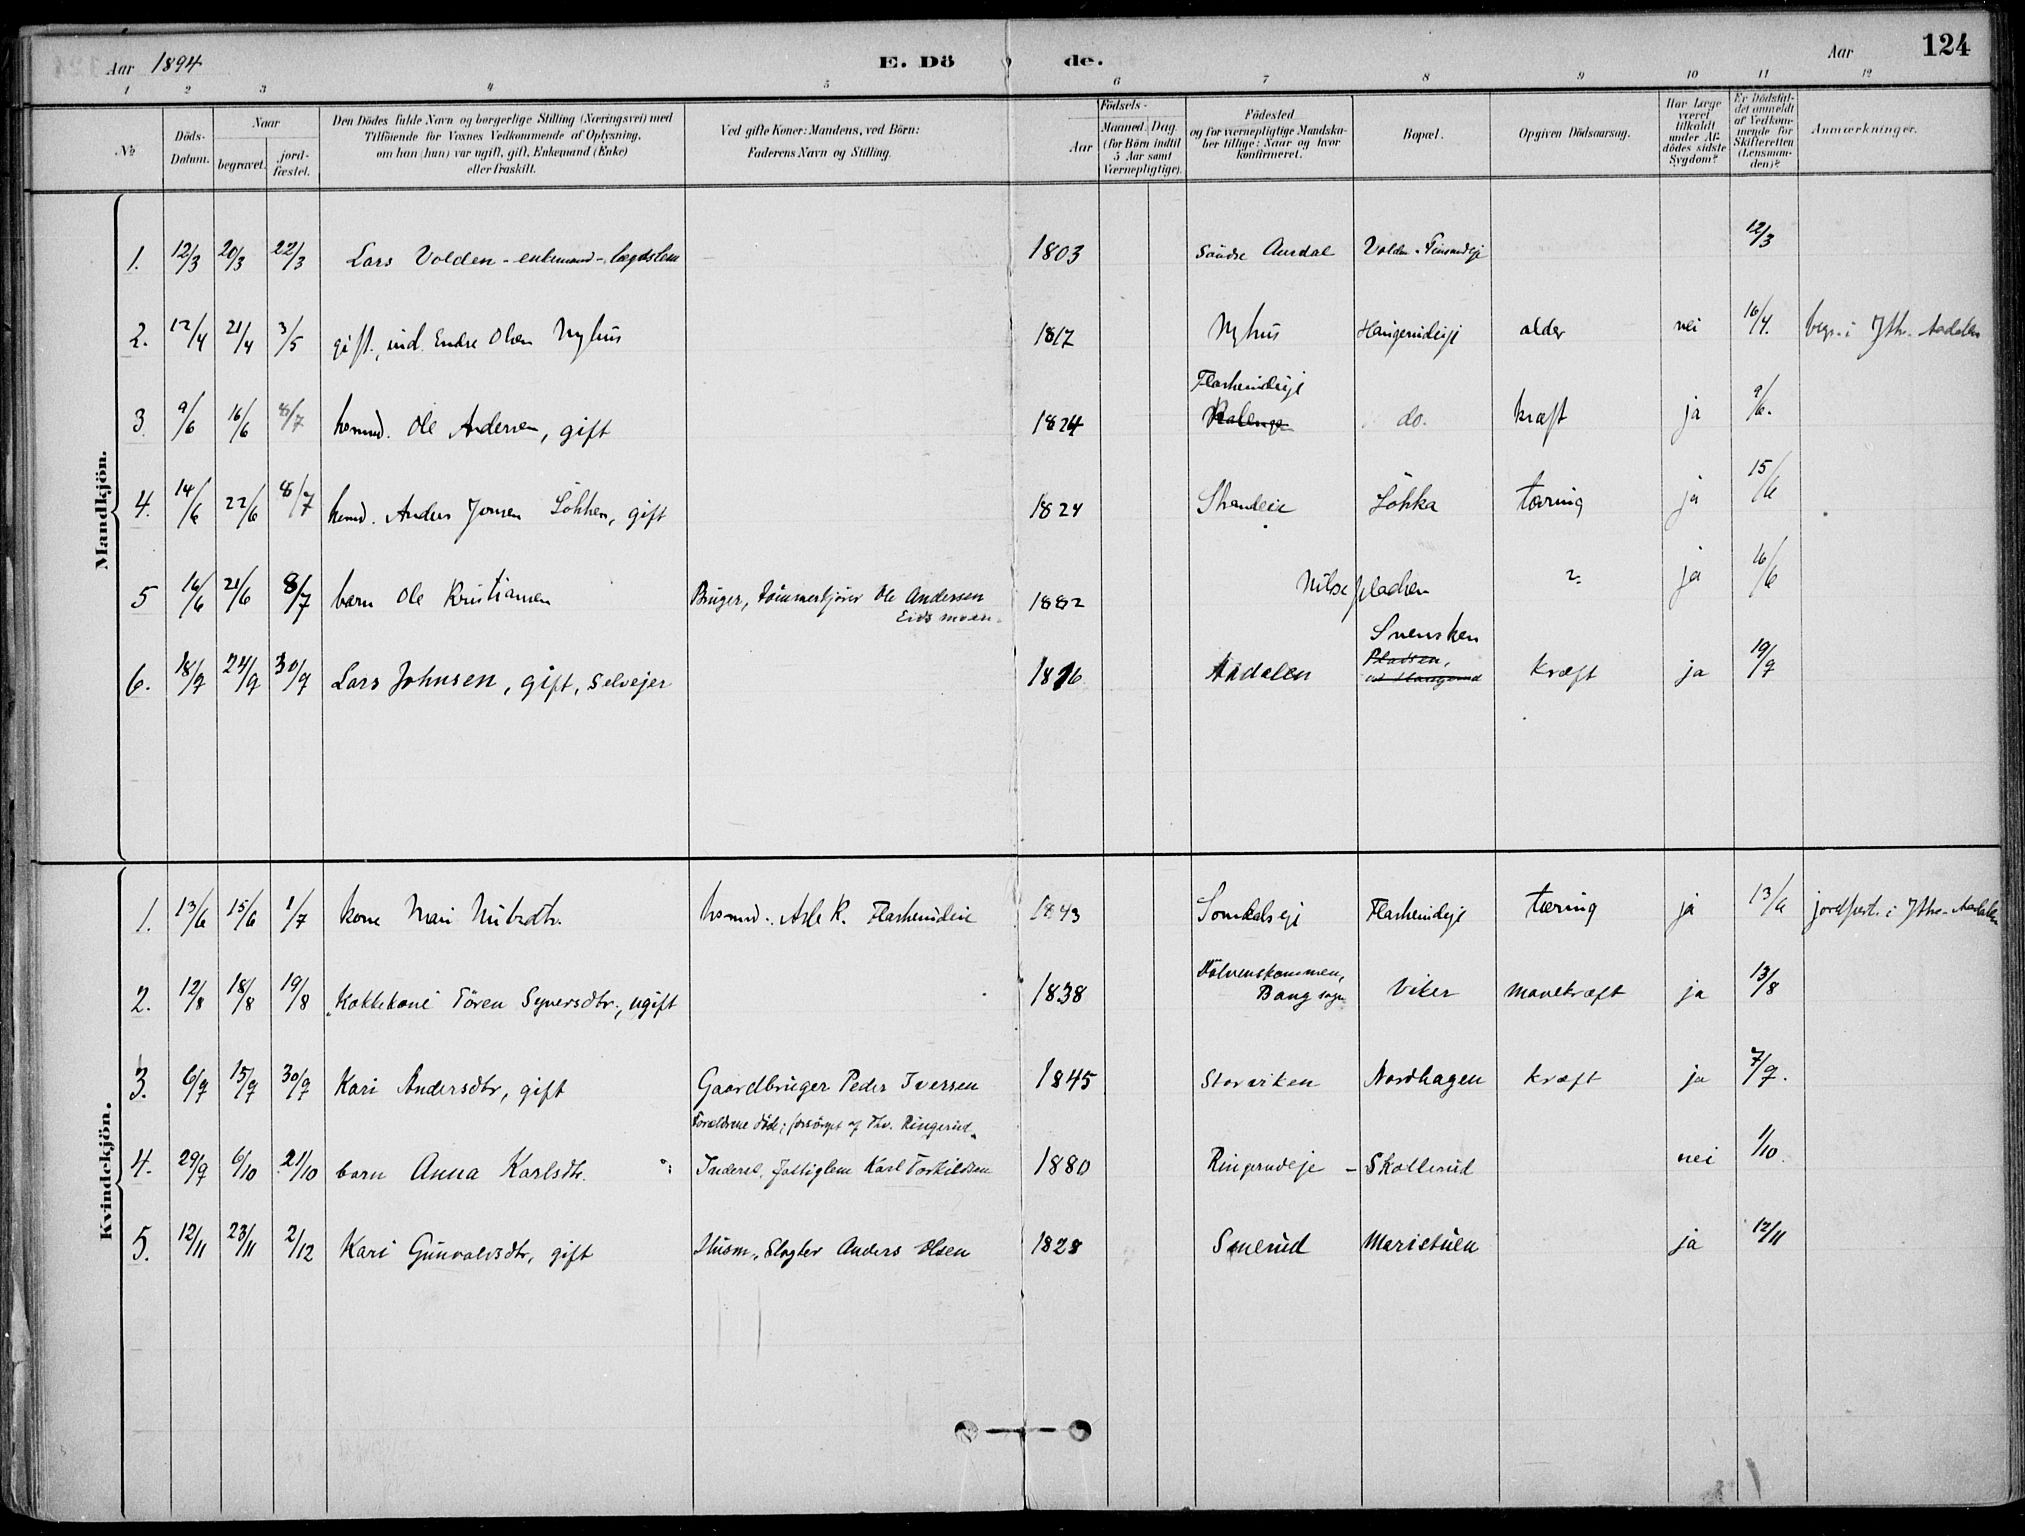 Aar 1894 E. Dö de. Aar 124
1 2 3 4 5 6 7 8 9 10 11 12
No
Döds-Datum.
Naar
begravet.
jord-fæstet.
Den Dödes fulde Navn og borgerlige Stilling (Næringsvei) med
Tilföiende for Voxnes Vedkommende af Oplysning,
om han (hun) var ugift, gift, Enkemand (Enke)
eller fraskilt.
Ved gifte Koner: Mandens, ved Börn:
Faderens Navn og Stilling.
Födsels-
Aar
Maaned. Dag
(for Börn indtil
5 Aar samt
Værnepligtige).
Födested
og for værnepligtige Mandska-
ber tillige: Naar og hvor
konfirmeret.
Bopæl.
Opgiven Dödsaarsag.
Har Læge
været
tilkaldt
under Af-
dödes sidste
Sygdom?
Er Dödsfal-
det anmeldt
af Vedkom-
mende for
Skifteretten
(Lensman-
den)?
Anmærkninger.
Mandkjön.
1. 12/3 20/3 22/3 Lars Volden - enkemand - lægdslem 1803 Söndre Aurdal Volden 12/3
2. 12/4 21/4 3/5 gift, ind. Endre Olsen Nyhus 1817 Nyhus Haugerudeije alder nei 16/4. begr. i Ytre-Aadalen
Flaskerudeije
3. 9/6 16/6 8/7 hsmd. Ole Andersen, gift 1824 do. kræft ja 9/6.
4. 14/6 22/6 8/7 hsmd. Anders Jonsen Lökken, gift 1824 Lökka tæring ja 15/6
5 16/6 21/6 8/7 barn Ole Kristiansen Bruger, tömmerkjörer Ole Andersen 1882 Nilsepladsen ? ja 16/6
Eidsmoen.
Svensken
6. 18/9 24/9 30/9 Lars Johnsen, gift, selvejer 1816 Aadalen Pladsen, kræft ja 19/9
Kvindekjön.
1. 13/6 15/6 1/7 kone Mari Nilsdtr. hsmd. Asle K. Flaskerudeie 1843 Somdalseje Flaskerudeje tæring ja 13/6 jordfæst. i Ytre-Aadalen
2. 12/8 18/8 19/8 Kokkekone Tören Syversdtr., ugift 1838 Bang sogn Viker mavekræft ja 13/8
3. 6/9 15/9 30/9 Kari Andersdtr, gift Gaardbruger Peder Iversen 1845 Storviken Nordhagen kræft ja 7/9.
Forældrene döde; forsörget af Thv. Ringerud.
4. 29/9 6/10 21/10 barn Anna Karlsdtr. Inderst, fattiglem Karl Torkildsen 1880 Ringerudeje - Skollerud nei 1/10.
5. 12/11 23/11 2/12 Kari Gunvaldsdtr, gift Husm., Slagter Anders Olsen 1828 Smerud Maristuen ja 12/11